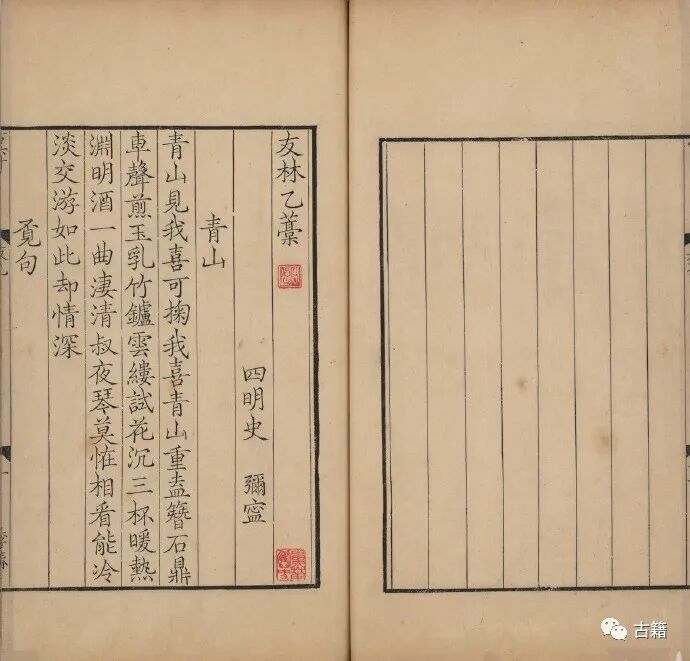 友林乙藁
四明史　彌寧
青山
青山見我喜可掬我喜青山重盍簪石鼎
車聲煎玉乳竹鑪雲縷試花沉三杯暖熱
淵明酒一曲淒清叔夜琴莫恠相看能冷
淡交游如此却情深
覓句
古籍